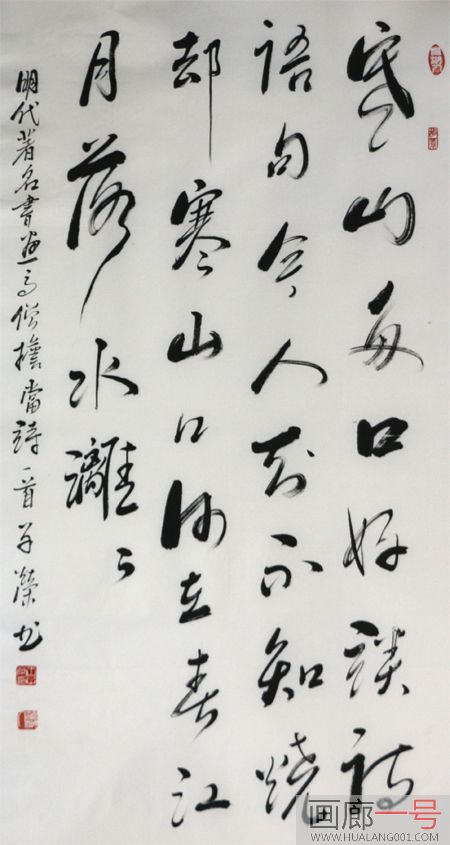 寒山多口好談詩
語句令人知不知燒
却寒山口何在春江
月落水灕々
明代著名書畫高僧擔當詩一首子榮书
画廊一号
WWW.HUALANG001.COM